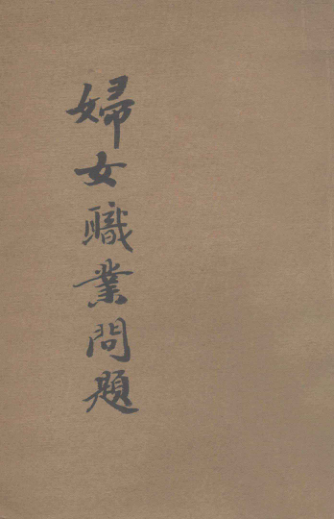 婦女職業問題